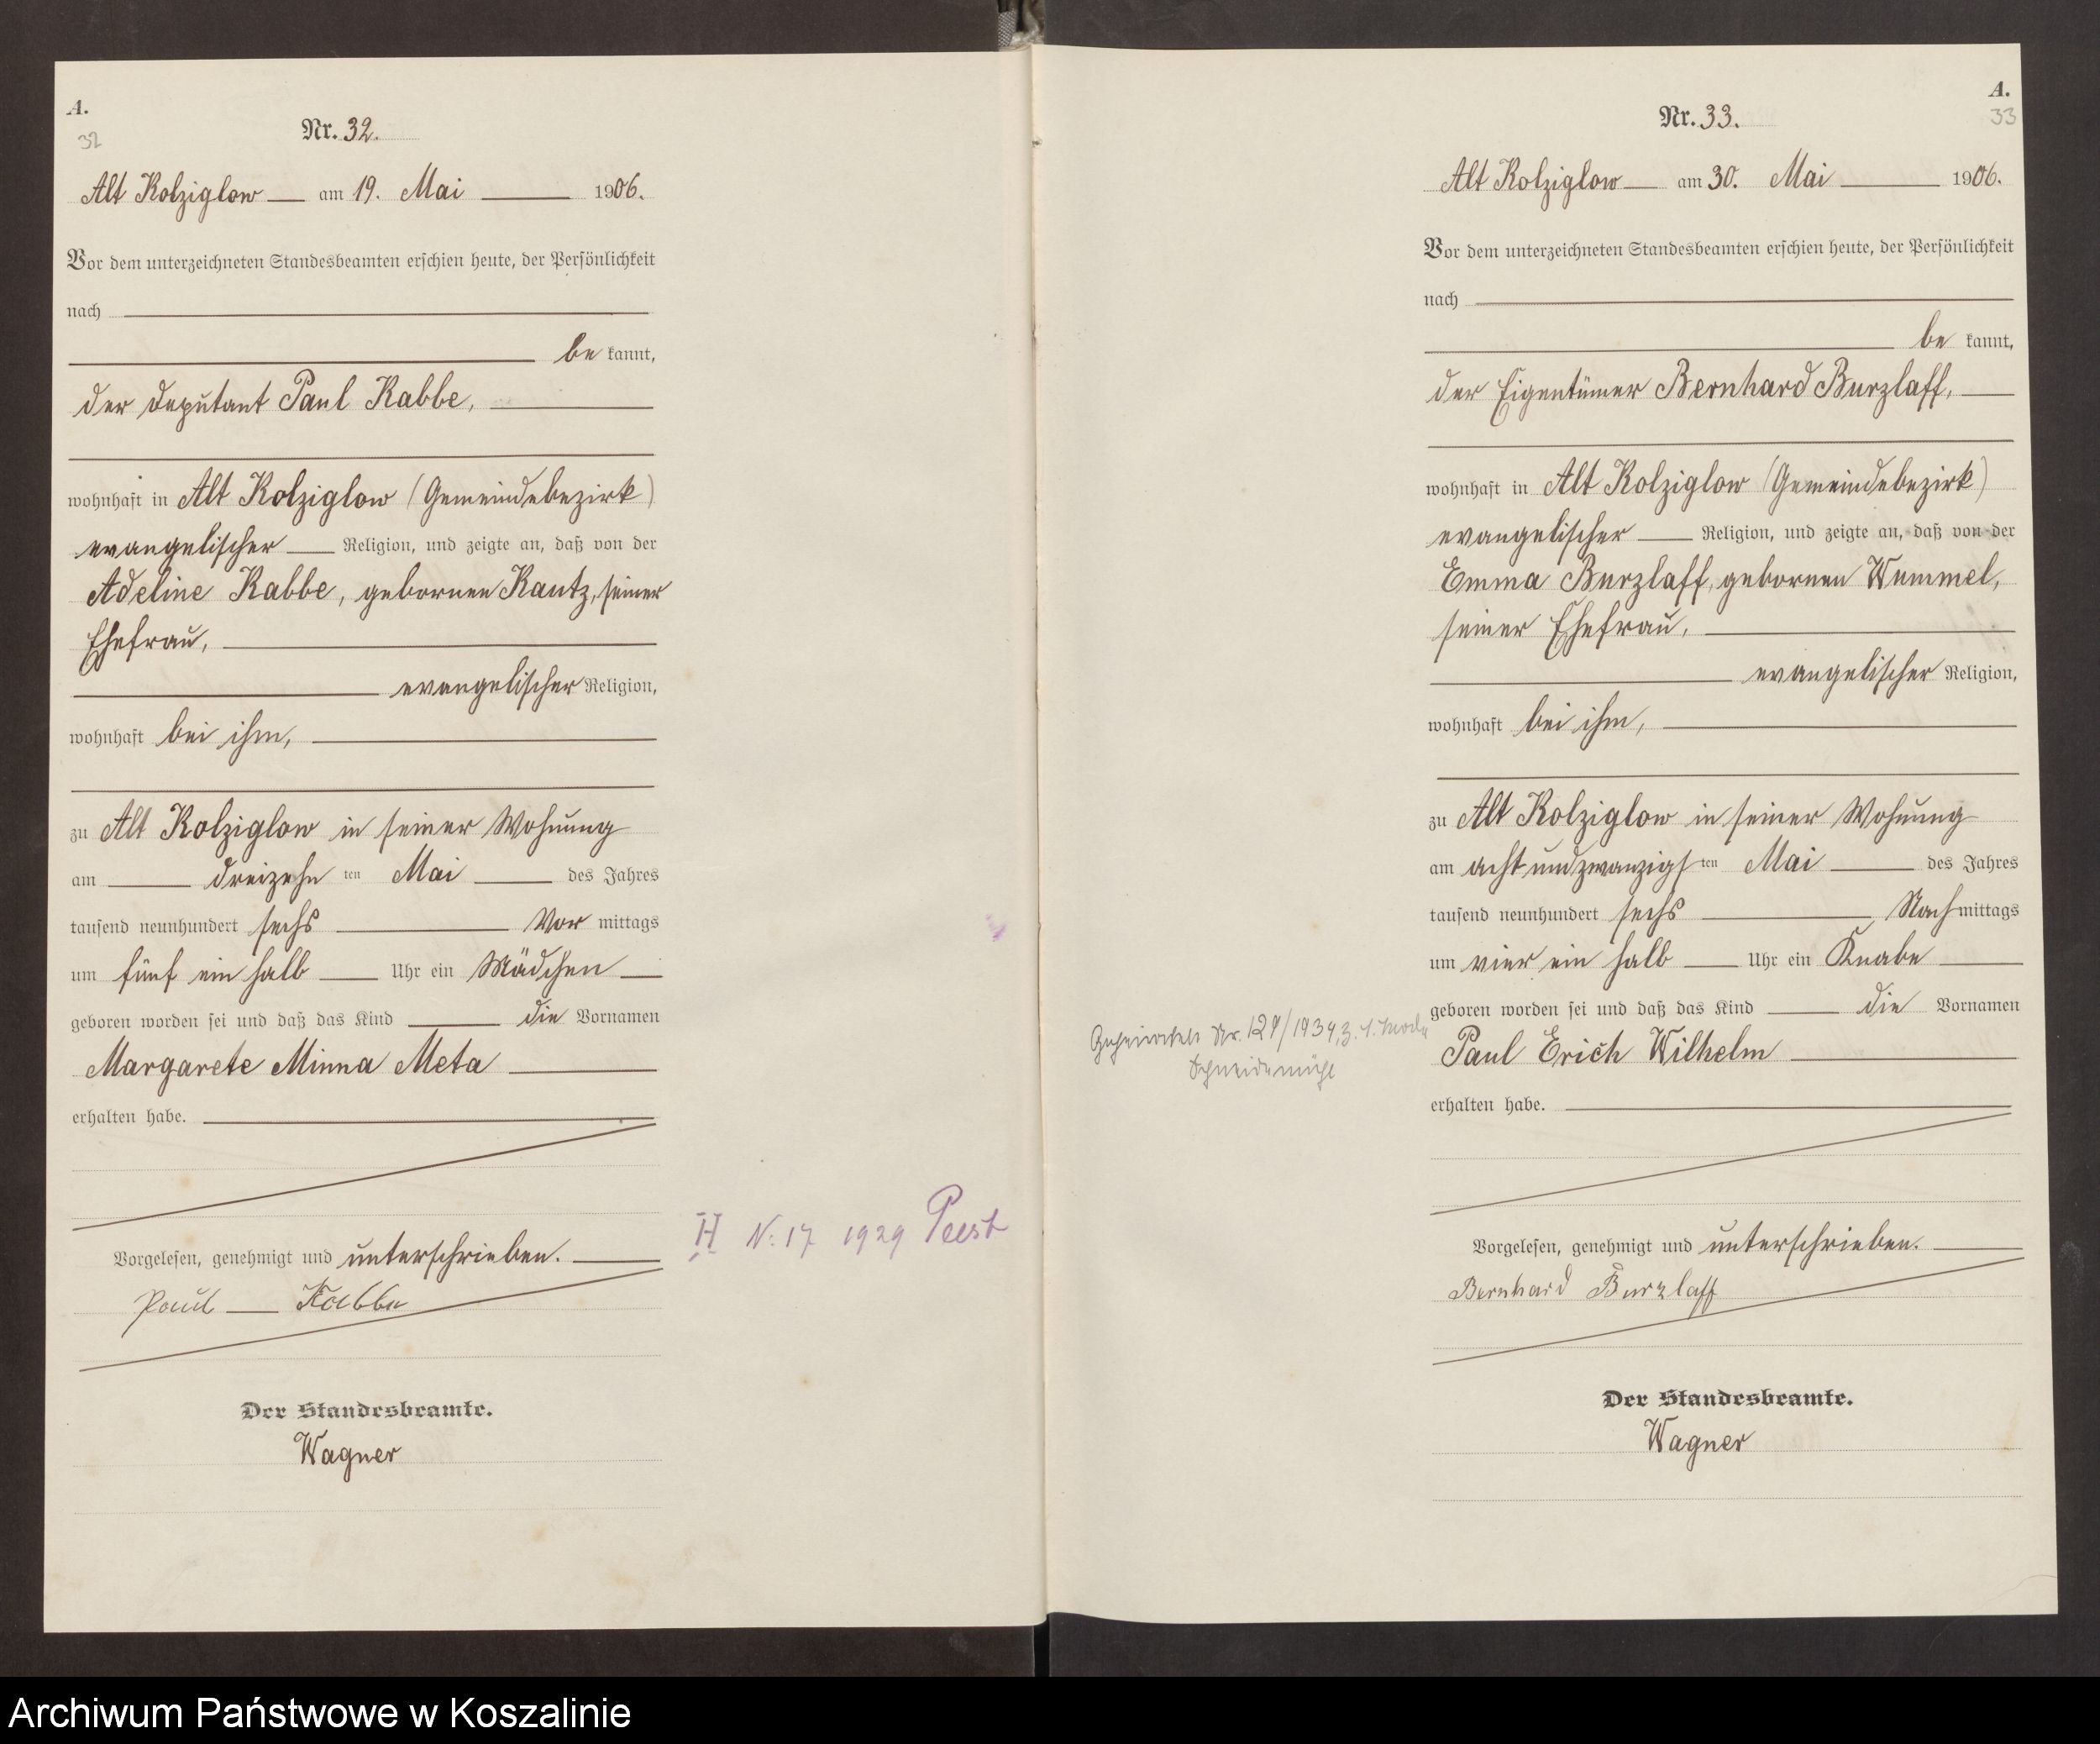 A.
32
Nr. 32.
Alt Kolziglow am 19. Mai 1906.
Vor dem unterzeichneten Standesbeamten erschien heute, der Persönlichkeit
nach
be kannt,
der Deputant Paul Kabbe,
wohnhaft in Alt Kolziglow (Gemeindebezirk)
evangelischer Religion, und zeigte an, daß von der
Adeline Kabbe, gebornen Kautz, seiner
Ehefrau,
evangelischer Religion,
wohnhaft bei ihm,
zu Alt Kolziglow in seiner Wohnung
am dreizehn ten Mai des Jahres
tausend neunhundert sechs Vor mittags
um fünf ein halb Uhr ein Mädchen
geboren worden sei und daß das Kind die Vornamen
Margarete Minna Meta
erhalten habe.
Vorgelesen, genehmigt und unterschrieben.
Paul Kabbe
Der Standesbeamte.
Wagner
H N. 17 1929 Peest
A.
33
Nr. 33.
Alt Kolziglow am 30. Mai 1906.
Vor dem unterzeichneten Standesbeamten erschien heute, der Persönlichkeit
nach
be kannt,
der Eigentümer Bernhard Burzlaff,
wohnhaft in Alt Kolziglow (Gemeindebezirk)
evangelischer Religion, und zeigte an, daß von der
Emma Burzlaff, gebornen Wummel,
seiner Ehefrau,
evangelischer Religion,
wohnhaft bei ihm,
zu Alt Kolziglow in seiner Wohnung
am acht und zwanzigs ten Mai des Jahres
tausend neunhundert sechs Nach mittags
um vier ein halb Uhr ein Knabe
geboren worden sei und daß das Kind die Vornamen
Nr. 129/1934,
Schneidemühl
Paul Erich Wilhelm
erhalten habe.
Vorgelesen, genehmigt und unterschrieben.
Bernhard Burzlaff
Der Standesbeamte.
Wagner
Archiwum Państwowe w Koszalinie